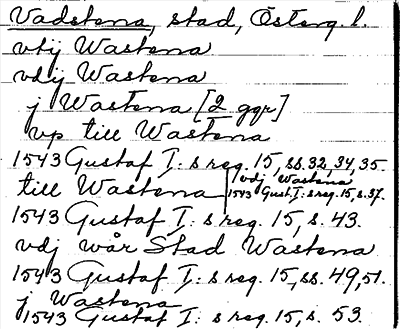 Vadstena, stad, Österg. l.
vtij Wastena
vdij Wastena
j Wastena [2 ggr]
vp till Wastena
1543 Gustaf I:s reg. 15, ss. 32, 34, 35.
till Wastena
vdj Wastena
1543 Gust. I:s reg. 15, s. 37.
1543 Gustaf I:s reg. 15, s. 43.
vdj wår Stad Wastena
1543 Gustaf I:s reg. 15, ss. 49, 51.
j Wastena
1543 Gustaf I:s reg. 15, s. 53.